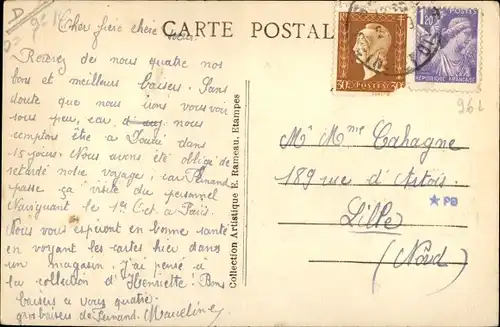 D
CARTE POSTALE
Cher frère chère soeur
Recevez de nous quatre nos
bons et meilleurs baisers. Sans
doute que nous irons vous voir
sous peu, car nous
comptons être a Douai dans
15 jours. Nous avons été obligé de
retardé notre voyage, car Fernand
passe ça visite du personnel
Naviguant le 1er Oct. a Paris.
Nous vous espéront en bonne santé
en voyant les cartes hier dans
un magasin. J'ai pensé à
la collection d'Henriette! Bons
baisers a vous quatre.
gros baisers de Fernand. Marceline
Collection Artistique E. Rameau, Etampes
POSTES
1F20
REPUBLIQUE FRANÇAISE
96 L
Mr Mme Cahagne
189 rue d'Artois
★ PB
Lille
(Nord)